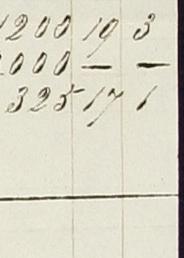 1200 19 3
2000 — —
325 17 1